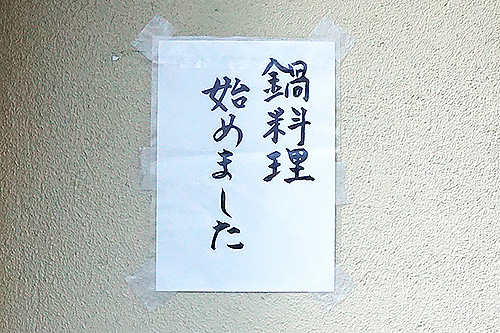 鍋料理
始めました